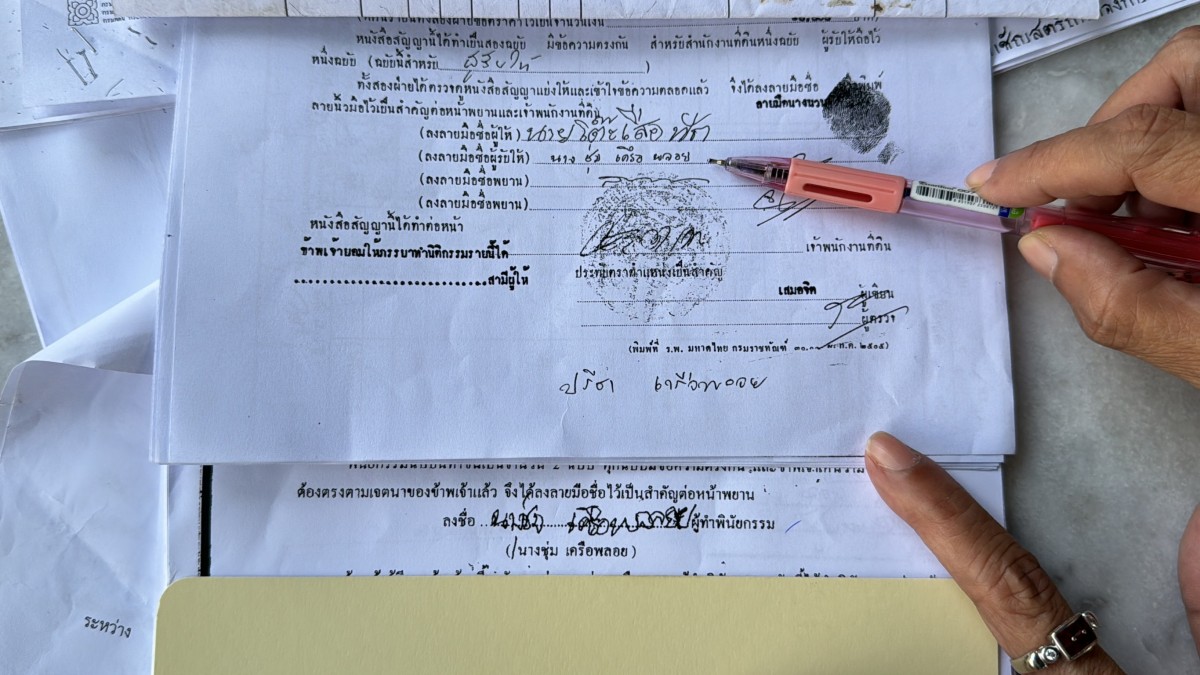 หนังสือสัญญานี้ได้ทำเป็นสองฉบับ มีข้อความตรงกัน สำหรับสำนักงานที่ดินหนึ่งฉบับ ผู้รับให้ถือไว้
หนึ่งฉบับ (ฉบับนี้สำหรับ ผู้รับให้ )
ทั้งสองฝ่ายได้ตรวจดูหนังสือสัญญาแบ่งให้และเข้าใจข้อความตลอดแล้ว จึงได้ลงลายมือชื่อ
ลายนิ้วมือไว้เป็นสำคัญต่อหน้าพยานและเจ้าพนักงานที่ดิน
(ลงลายมือชื่อผู้ให้)
(ลงลายมือชื่อผู้รับให้) นาง ชุ่ม เครือ พลอย
(ลงลายมือชื่อพยาน)
(ลงลายมือชื่อพยาน)
หนังสือสัญญานี้ได้ทำต่อหน้า
เจ้าพนักงานที่ดิน
ข้าพเจ้ายอมให้ภรรยาทำนิติกรรมรายนี้ได้
ประทับตราตำแหน่งเป็นสำคัญ
สามีผู้ให้
เสมอจิต ผู้เขียน
ผู้ตรวจ
(พิมพ์ที่ ร.พ. มหาดไทย กรมราชทัณฑ์ ๒๕๐๕)
ปรีชา เครือพลอย
ต้องตรงตามเจตนาของข้าพเจ้าแล้ว จึงได้ลงลายมือชื่อไว้เป็นสำคัญต่อหน้าพยาน
ลงชื่อ นางชุ่ม เครือพลอย ผู้ทำพินัยกรรม
(นางชุ่ม เครือพลอย)
ระหว่าง